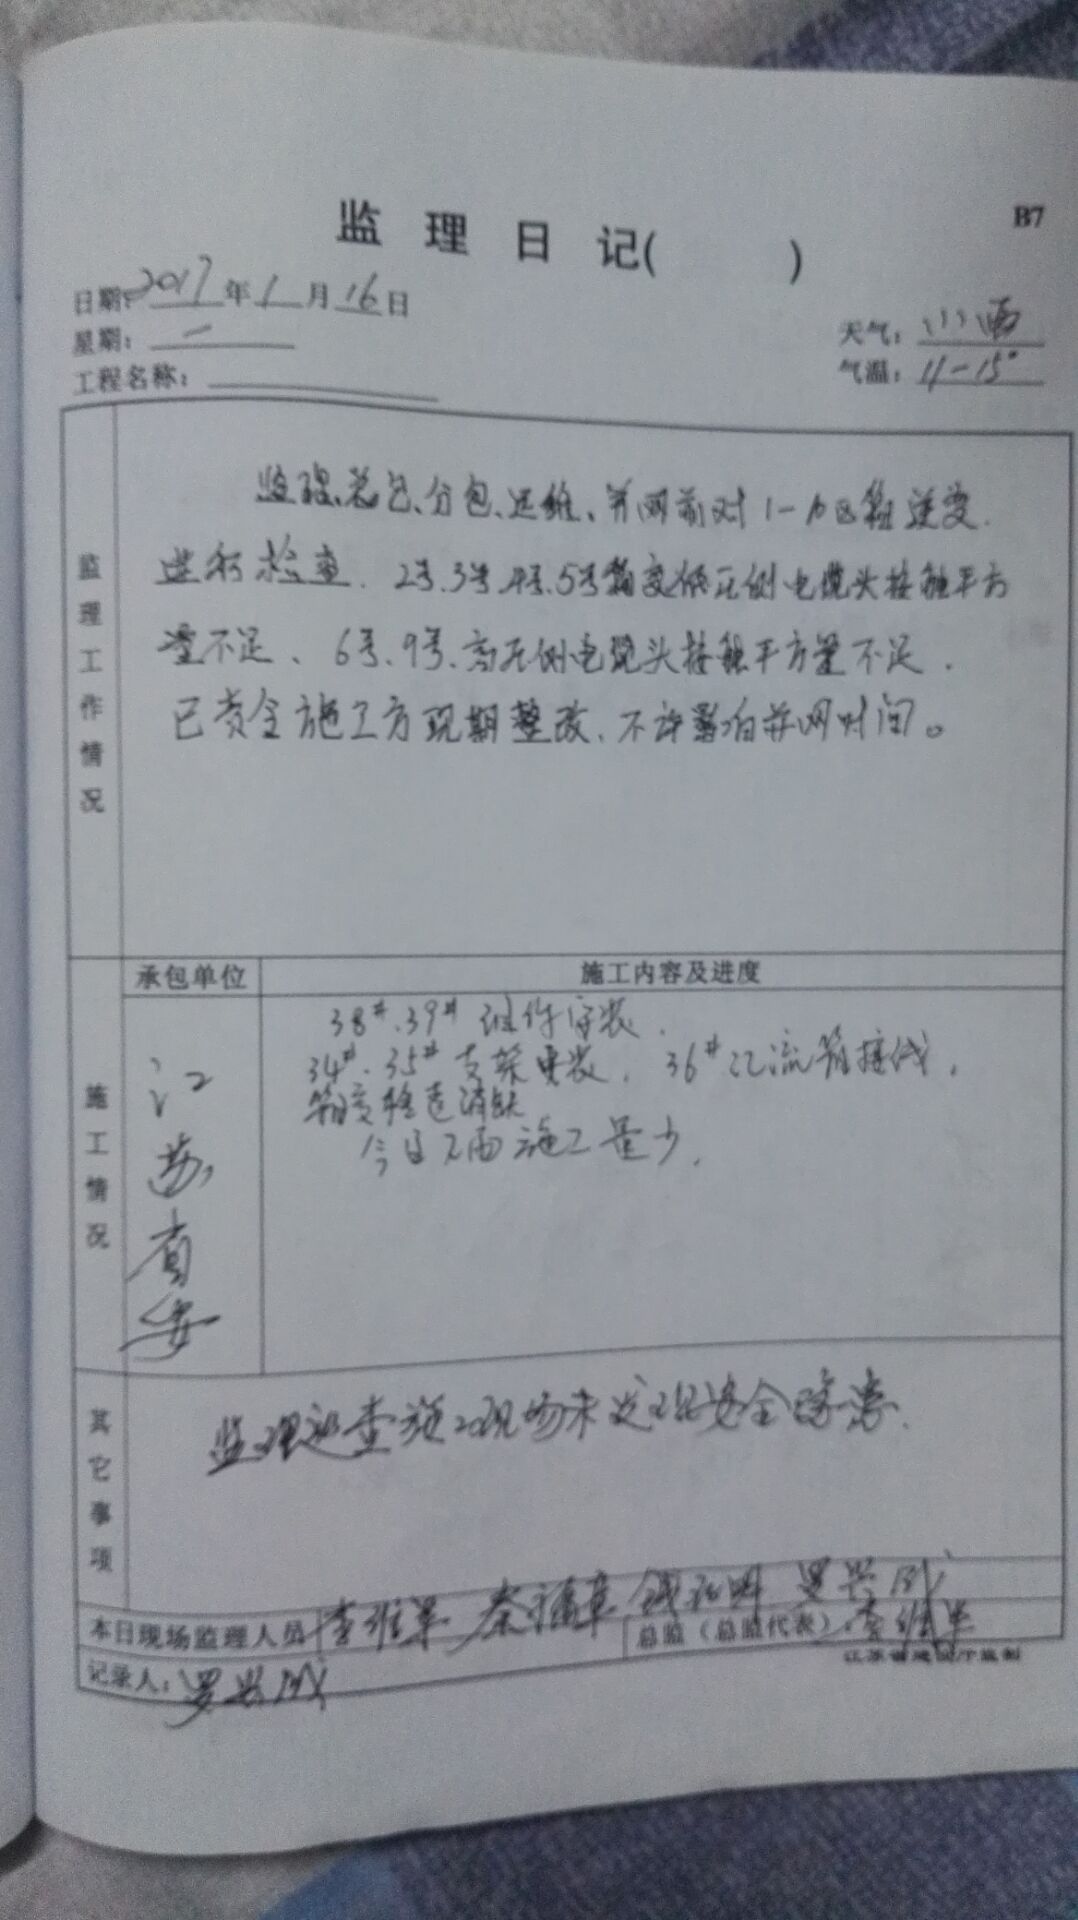 B7
监理日记( )
日期:2017年1月16日
星期:一
天气:小雨
工程名称:
气温:11-15°
监理工作情况
监理、总包、分包、运维、并网前对1-10区箱变
进行检查.2号.3号.4号.5号箱变低压侧电缆头接触平方
量不足、6号.9号.高压侧电缆头接触平方量不足.
已责令施工方现期整改、不许影响并网时间。
承包单位
施工内容及进度
施工情况
江苏省安
38#.39#组件安装.
34#.35#支架安装.36#汇流箱接线,
箱变检查消缺
今日下雨施工量少.
其它事项
监理巡查施工现场未发现安全隐患.
本日现场监理人员 李维军 秦福章 钱 明 罗兴成
总监(总监代表) 李维军
记录人:罗兴成
江苏省建设厅监制